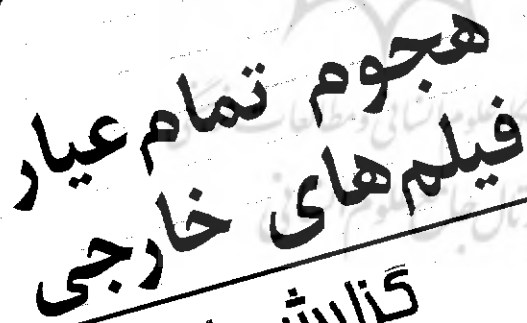 هجوم تمام عیار
فیلم‌های خارجی
گزارش